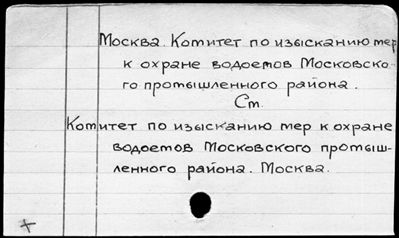 Москва. Комитет по изысканию мер
к охране водоемов Московско-
го промышленного района.
См.
Комитет по изысканию мер к охране
водоемов Московского промыш-
ленного района. Москва.